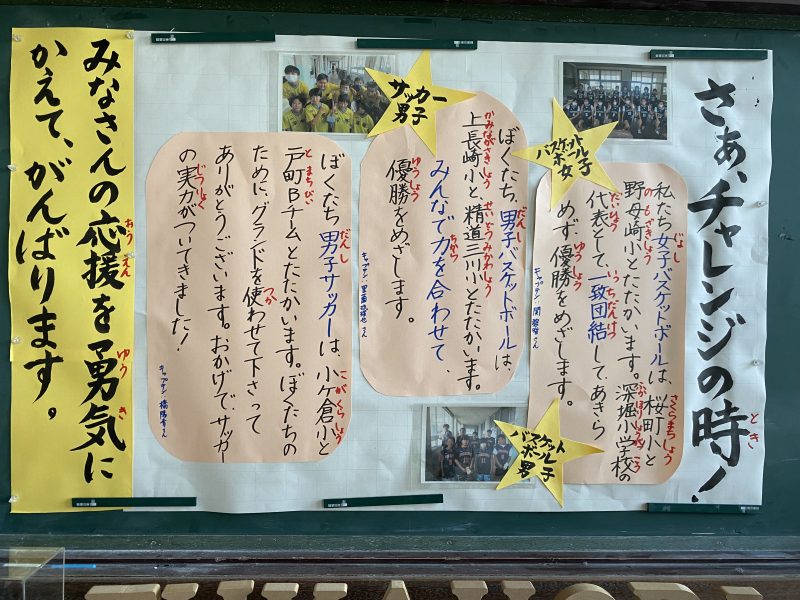 さぁ、チャレンジの時!
バスケット
ボール
女子
私たち女子バスケットボールは、桜町小と
野母崎小とたたかいます。深堀小学校の
代表として、一致団結して、あきら
めず、優勝をめざします。
キャプテン
さん
サッカー
男子
ぼくたち、男子バスケットボールは、
上長崎小と精道三川小とたたかいます。
みんなで力を合わせて、
優勝をめざします。
キャプテン
さん
バスケット
ボール
男子
ぼくたち男子サッカーは、小ケ倉小と
戸町Bチームとたたかいます。ぼくたちの
ために、グランドを使わせて下さって
ありがとうございます。おかげで、サッカー
の実力がついてきました!
キャプテン
さん
みなさんの応援を勇気に
かえて、がんばります。